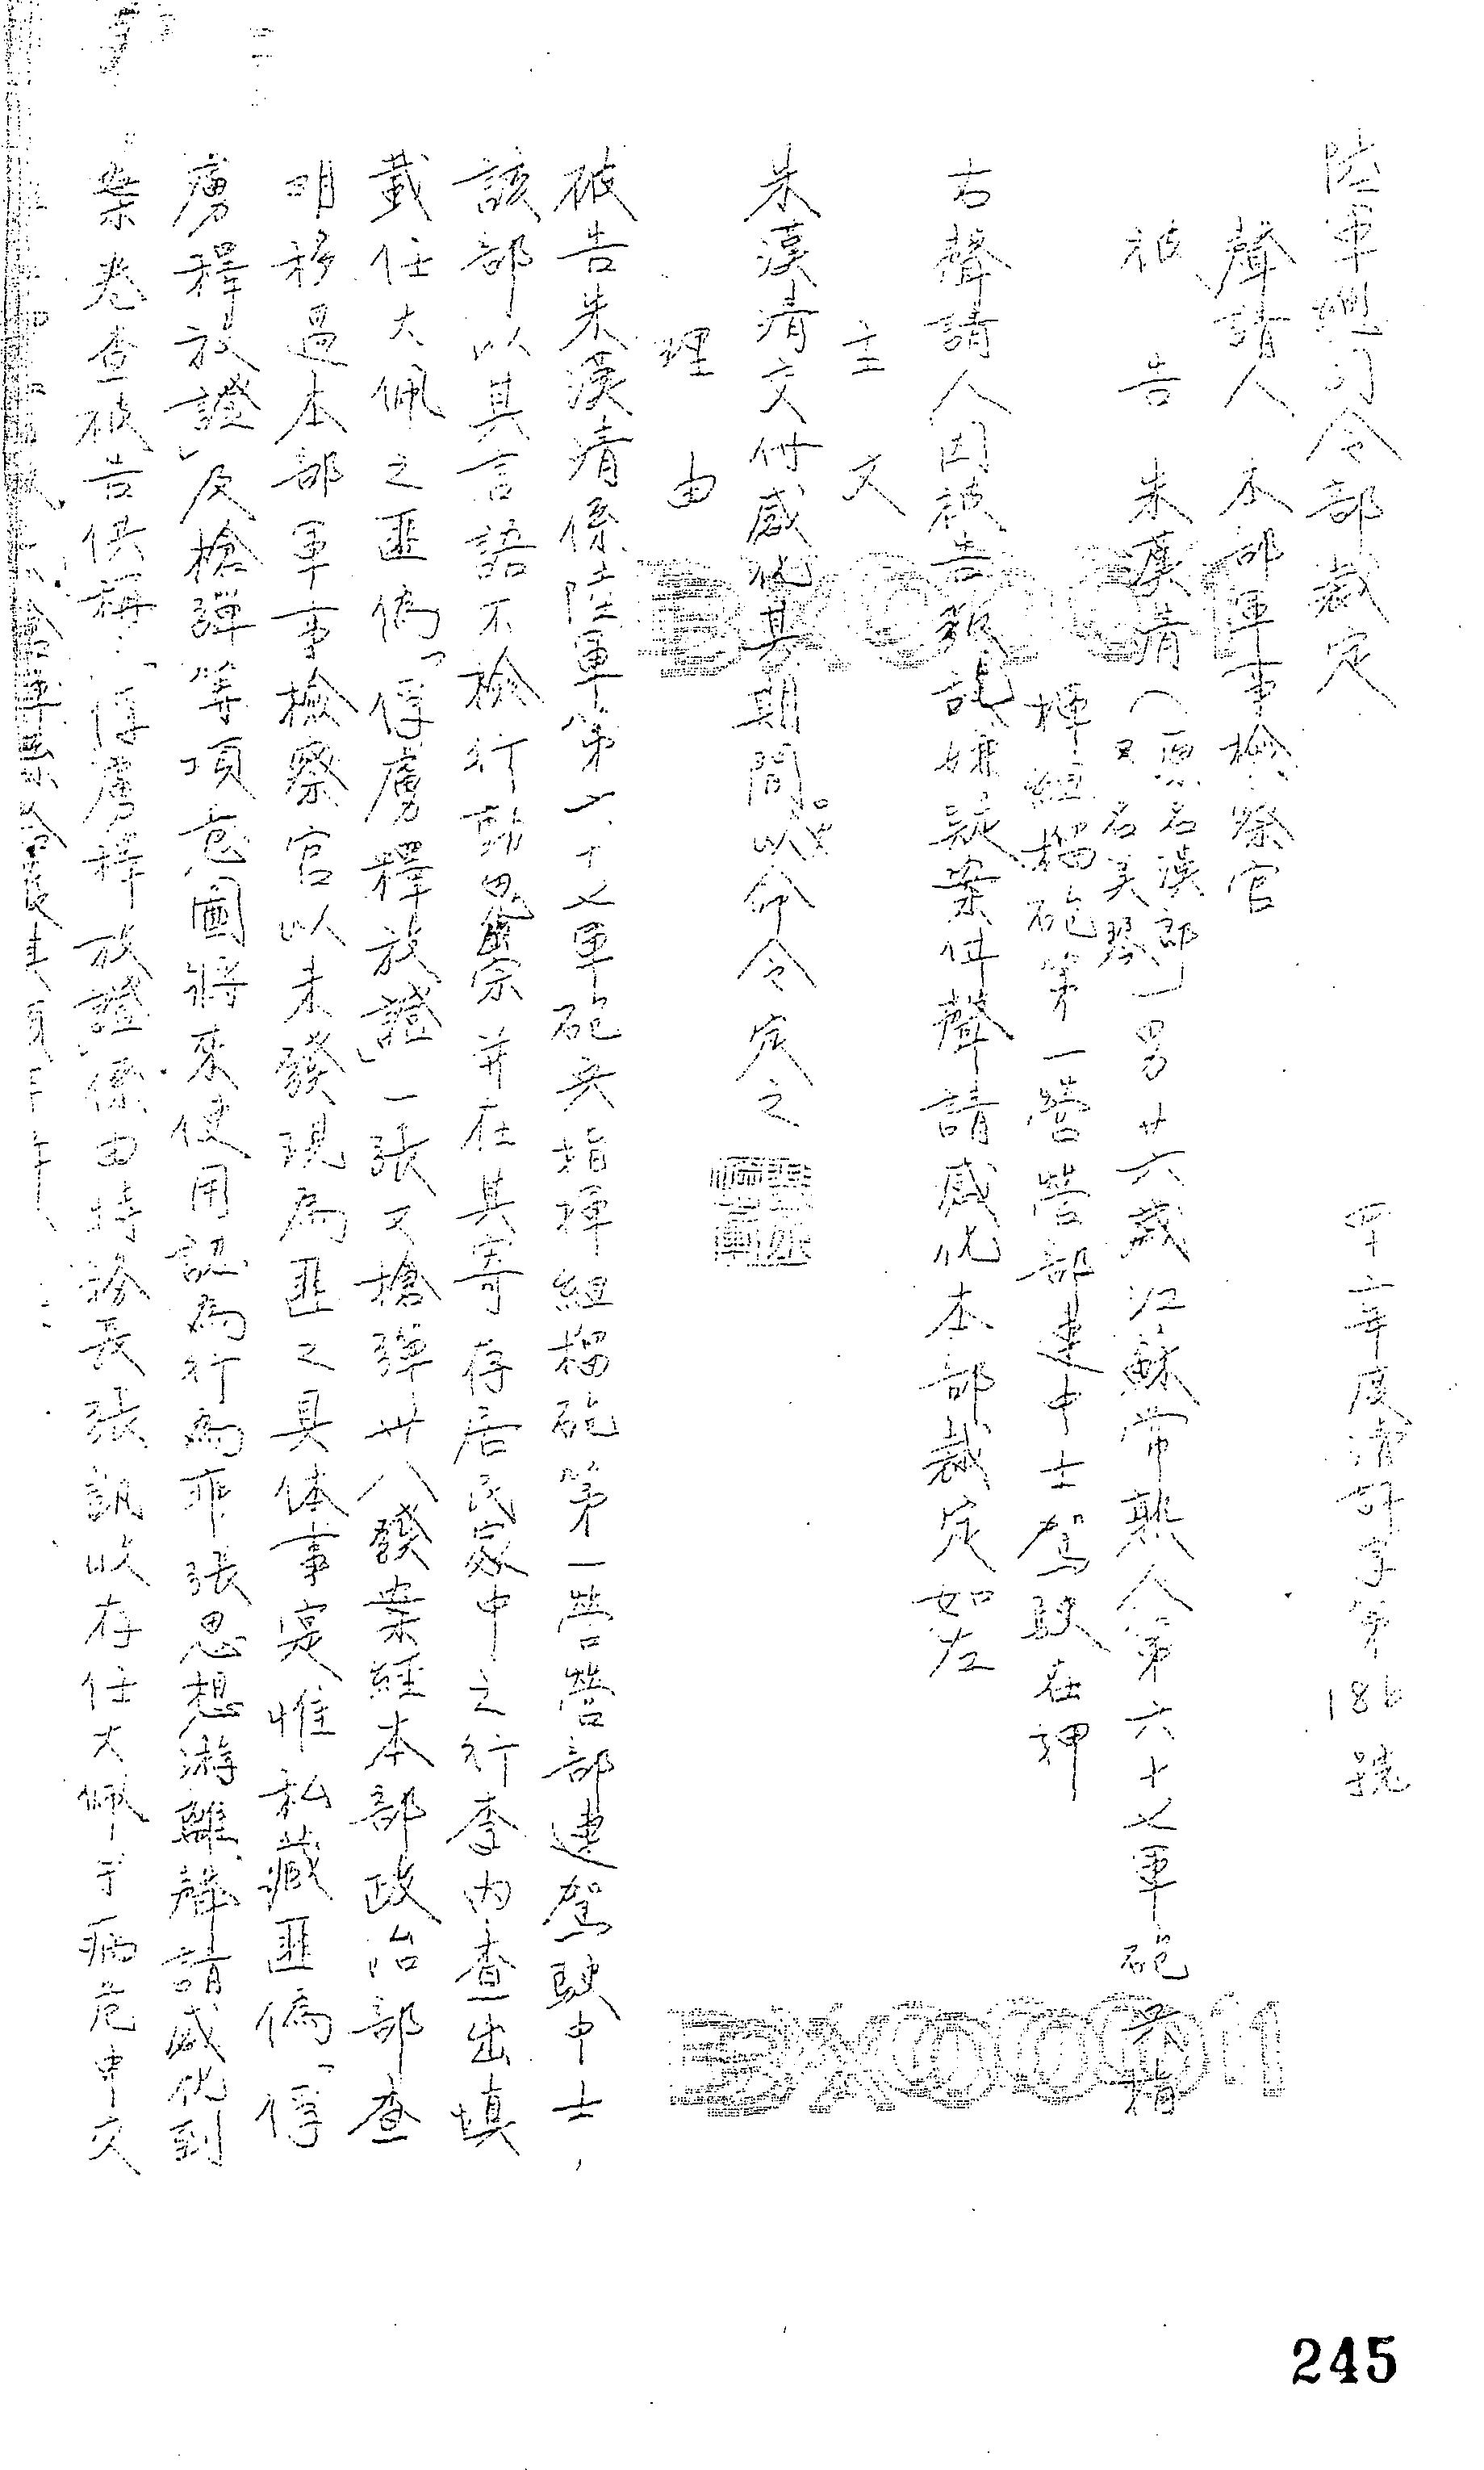 陸軍總司令部裁定
四十二年度清許字第186號
聲請人 本部軍事檢察官
被告 朱漢清（原名漢郎 又名美琴）男廿六歲江蘇常熟人第六十七軍砲兵指
揮組榴砲第一營營部連中士駕駛在押
右聲請人因被告叛亂嫌疑案件聲請感化本部裁定如左
主文
朱漢清交付感化其期間以命令定之
理由
被告朱漢清係陸軍第六十七軍砲兵指揮組榴砲第一營營部連駕駛中士，
該部以其言語不檢行動 並在其寄存居民家中之行李內查出填
載任大佩之匪偽「俘虜釋放證」一張又槍彈卅八發案經本部政治部查
明移過本部軍事檢察官以未發現為匪之具体事寔惟私藏匪偽「俘
虜釋放證」及槍彈等項意圖將來使用認為行為乖張思想游離聲請感化到
案卷查被告供稱：「俘虜釋放證」係由特務長張訊以存任大佩于病危中交
BX0001
BX0001
245